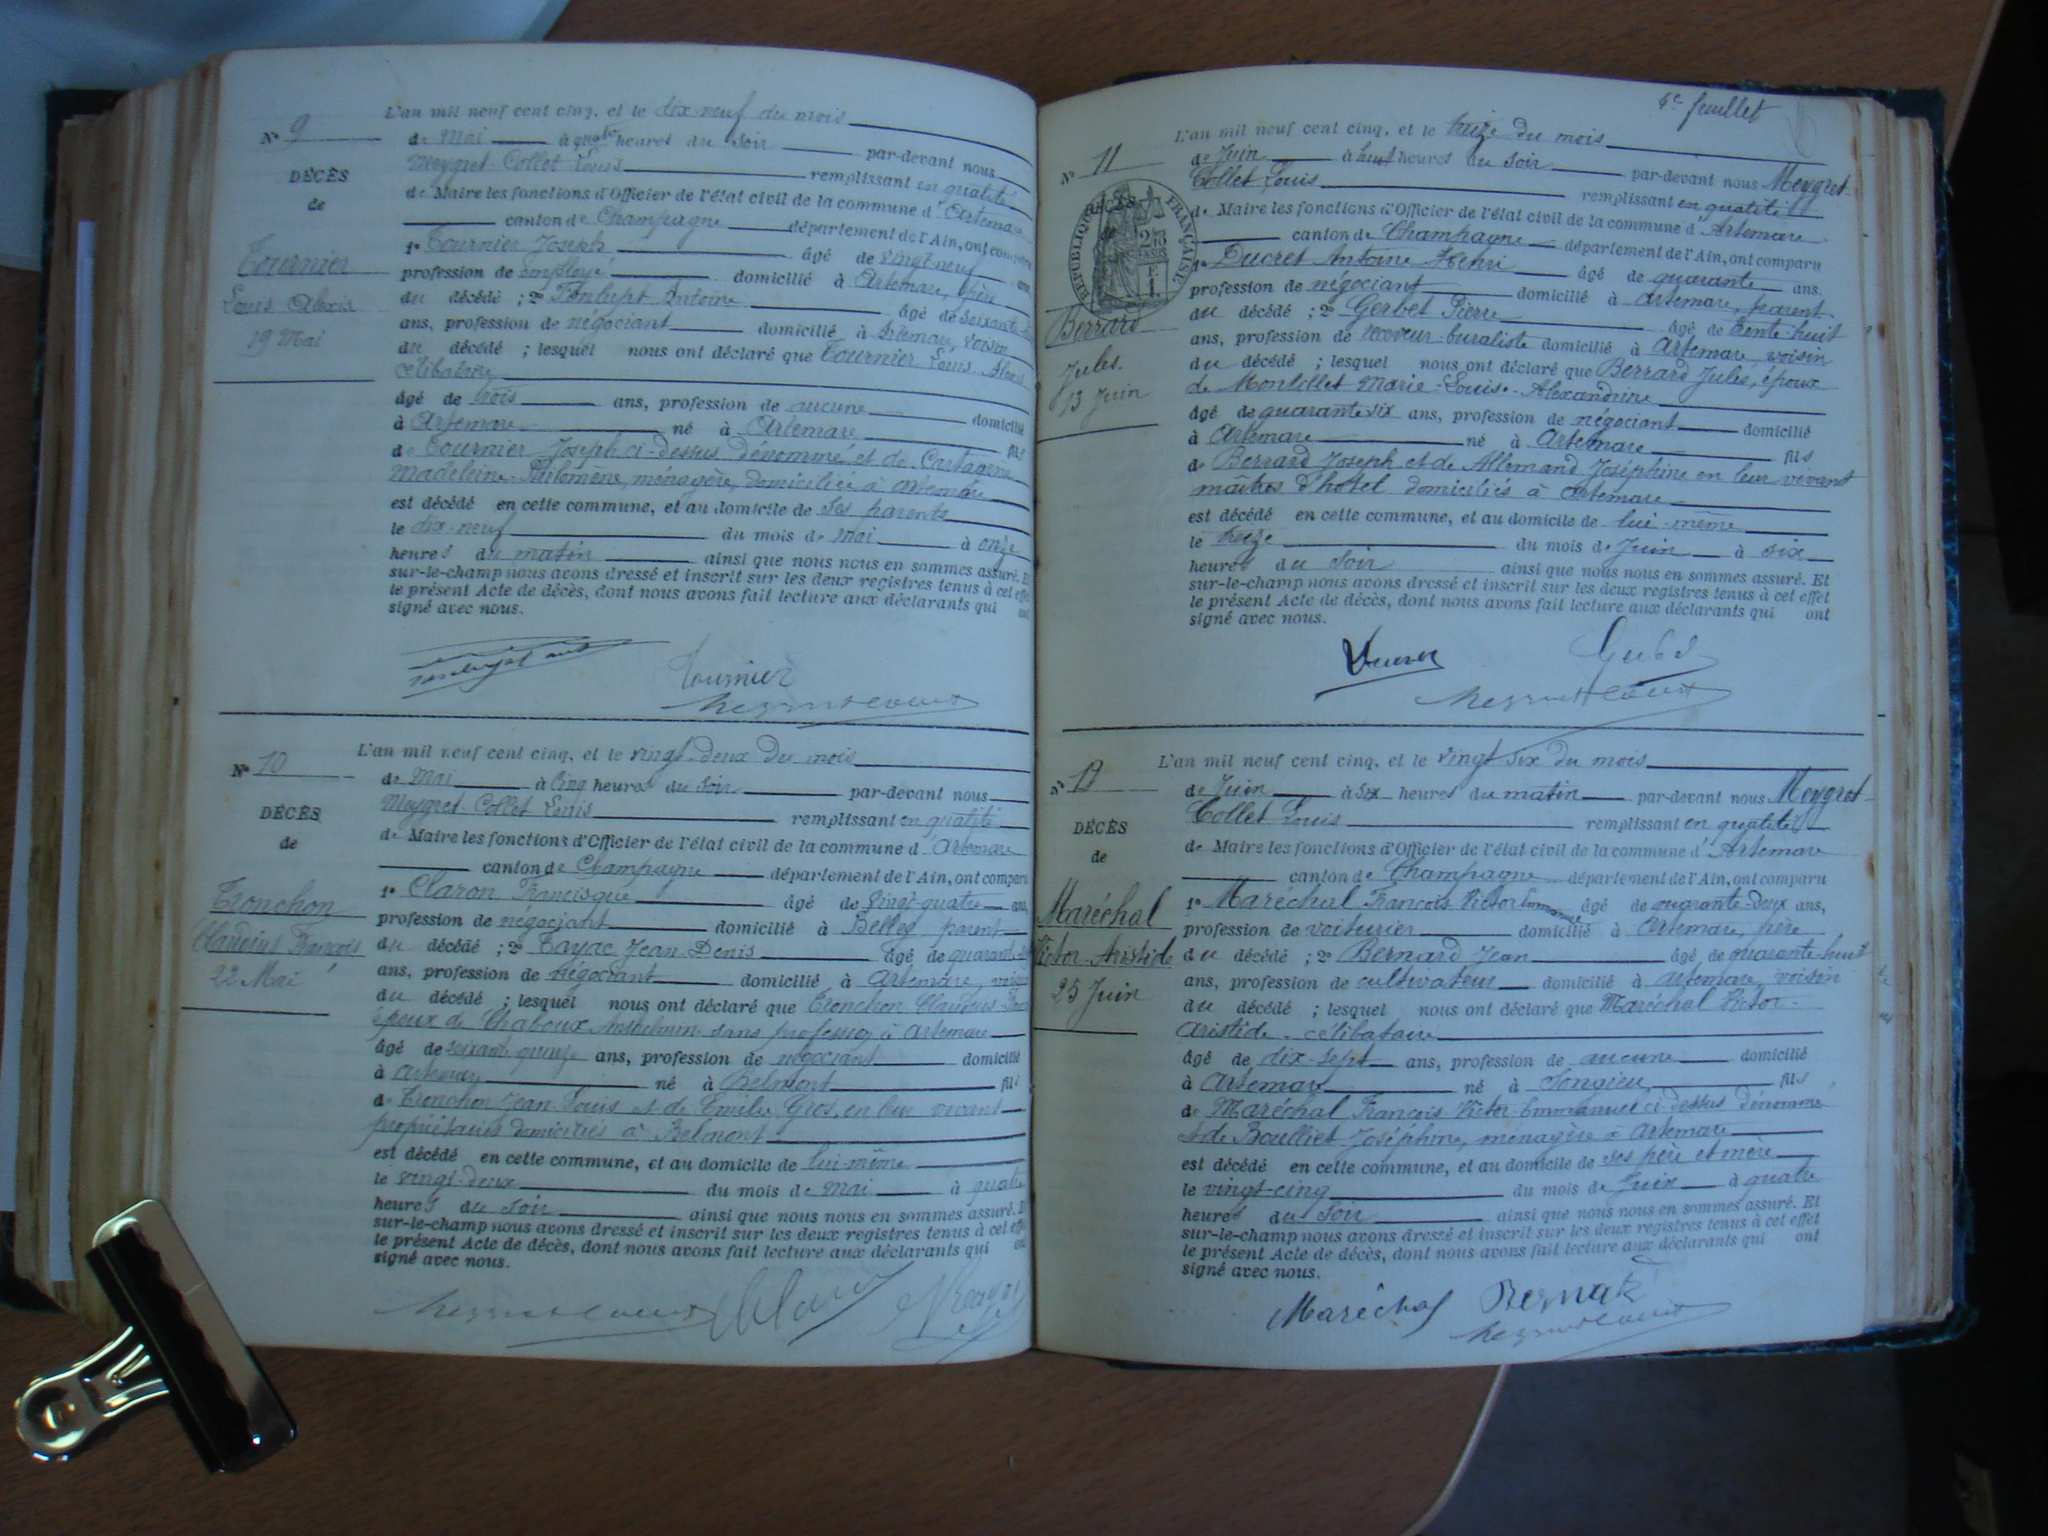 L'an mil neuf cent cinq, et le dix-neuf du mois
No 9
de Mai à heures du Soir par-devant nous
Meygret-Collet Louis remplissant en qualité
DÉCÈS
de
de Maire les fonctions d'Officier de l'état civil de la commune d'Artemare
canton de Champagne département de l'Ain, ont comparu
Tournier
Louis Alexis
19 Mai
1o Tournier Joseph âgé de vingt-neuf ans,
profession de employé domicilié à Artemare, père
du décédé ; 2o Antoine âgé de soixante
ans, profession de négociant domicilié à Artemare, voisin
du décédé ; lesquel nous ont déclaré que Tournier Louis Alexis
célibataire
âgé de trois ans, profession de aucune domicilié
à Artemare né à Artemare fils
de Tournier Joseph ci-dessus dénommé et de
Madeleine-Philomène, ménagère, domiciliée à Artemare
est décédé en cette commune, et au domicile de ses parents
le dix-neuf du mois de Mai à onze
heures du matin ainsi que nous nous en sommes assuré. Et
sur-le-champ nous avons dressé et inscrit sur les deux registres tenus à cet effet
le présent Acte de décès, dont nous avons fait lecture aux déclarants qui ont
signé avec nous.
Tournier
Meygret Collet
L'an mil neuf cent cinq, et le vingt-deux du mois
No 10
de Mai à cinq heures du Soir par-devant nous
Meygret-Collet Louis remplissant en qualité
DÉCÈS
de
de Maire les fonctions d'Officier de l'état civil de la commune d'Artemare
canton de Champagne département de l'Ain, ont comparu
Tronchon
Claudius François
22 Mai
1o Claron Francisque âgé de vingt-quatre ans,
profession de négociant domicilié à Belley, parent
du décédé ; 2o Tayac Jean-Denis âgé de quarante
ans, profession de négociant domicilié à Artemare, voisin
du décédé ; lesquel nous ont déclaré que Tronchon Claudius
époux de Chaboux sans profession à Artemare
âgé de soixante quinze ans, profession de négociant domicilié
à Artemare né à Belmont fils
de Tronchon Jean-Louis et de Emilie Gros, en leur vivant
propriétaires domiciliés à Belmont
est décédé en cette commune, et au domicile de lui-même
le vingt-deux du mois de Mai à quatre
heures du soir ainsi que nous nous en sommes assuré. Et
sur-le-champ nous avons dressé et inscrit sur les deux registres tenus à cet effet
le présent Acte de décès, dont nous avons fait lecture aux déclarants qui ont
signé avec nous.
Meygret Collet Claron
6e feuillet
L'an mil neuf cent cinq, et le treize du mois
No 11
de Juin à huit heures du Soir par-devant nous Meygret-
Collet Louis remplissant en qualité
DÉCÈS
RÉPUBLIQUE FRANÇAISE
de Maire les fonctions d'Officier de l'état civil de la commune d'Artemare
canton de Champagne département de l'Ain, ont comparu
Berrard
Jules
13 Juin
1o Ducret Antoine Henri âgé de quarante ans.
profession de négociant domicilié à Artemare, parent
du décédé ; 2o Gerbet Pierre âgé de trente-huit
ans, profession de receveur-buraliste domicilié à Artemare, voisin
du décédé ; lesquel nous ont déclaré que Berrard Jules, époux
de Montillet Marie-Louise-Alexandrine
âgé de quarante six ans, profession de négociant domicilié
à Artemare né à Artemare fils
de Berrard Joseph et de Allemand Joséphine en leur vivant
maîtres d'hôtel domiciliés à Artemare
est décédé en cette commune, et au domicile de lui-même
le treize du mois de Juin à six
heures du Soir ainsi que nous nous en sommes assuré. Et
sur-le-champ nous avons dressé et inscrit sur les deux registres tenus à cet effet
le présent Acte de décès, dont nous avons fait lecture aux déclarants qui ont
signé avec nous.
Ducret Gerbet
Meygret Collet
L'an mil neuf cent cinq, et le vingt six du mois
No 12
de Juin à six heures du matin par-devant nous Meygret-
Collet Louis remplissant en qualité
DÉCÈS
de
de Maire les fonctions d'Officier de l'état civil de la commune d'Artemare
canton de Champagne département de l'Ain, ont comparu
Maréchal
Victor-Aristide
25 Juin
1o Maréchal François Victor Emmanuel âgé de quarante-deux ans,
profession de voiturier domicilié à Artemare, père
du décédé ; 2o Bernard Jean âgé de quarante-huit
ans, profession de cultivateur domicilié à Artemare, voisin
du décédé ; lesquel nous ont déclaré que Maréchal Victor-
Aristide célibataire
âgé de dix-sept ans, profession de aucune domicilié
à Artemare né à Songieu fils
de Maréchal François Victor-Emmanuel ci-dessus dénommé
et de Boulliet Joséphine, ménagère à Artemare
est décédé en cette commune, et au domicile de ses père et mère
le vingt-cinq du mois de Juin à quatre
heures du soir ainsi que nous nous en sommes assuré. Et
sur-le-champ nous avons dressé et inscrit sur les deux registres tenus à cet effet
le présent Acte de décès, dont nous avons fait lecture aux déclarants qui ont
signé avec nous.
Maréchal Bernard
Meygret Collet